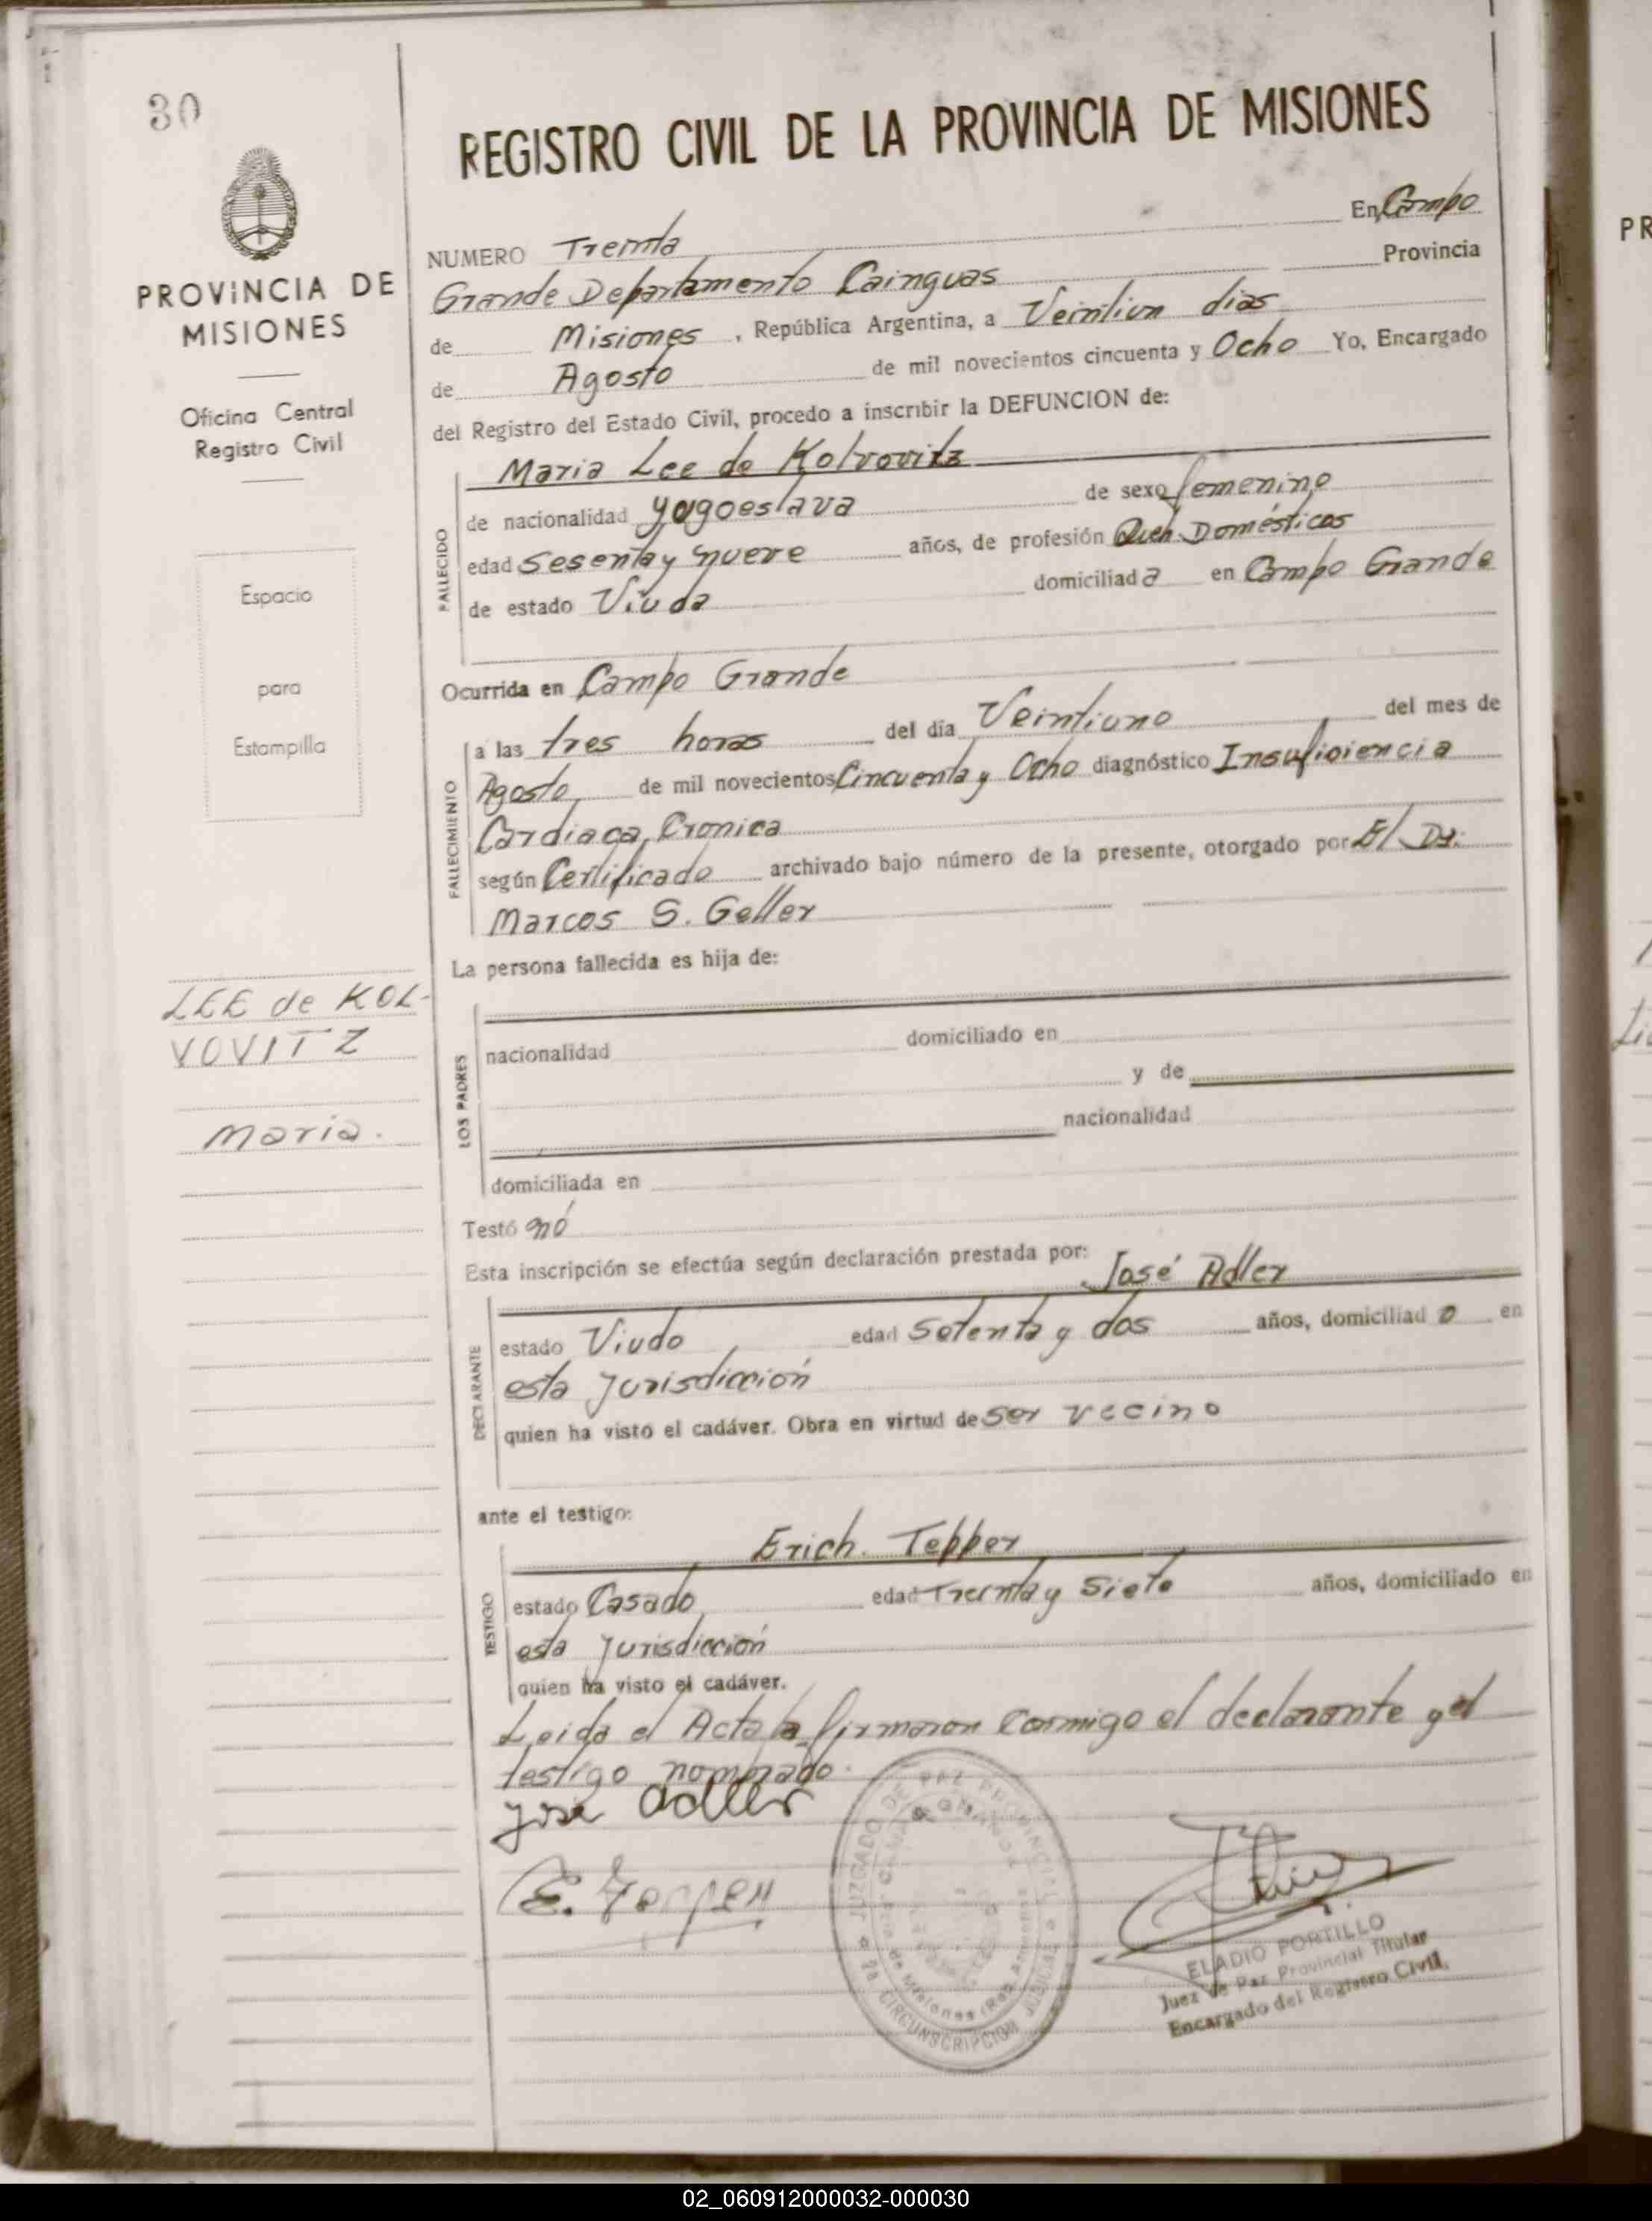 30
PROVINCIA DE
MISIONES
Oficina Central
Registro Civil
Espacio
para
Estampilla
LEE de KOL-
VOVITZ
Maria.
REGISTRO CIVIL DE LA PROVINCIA DE MISIONES
NUMERO Treinta En Campo
Grande Departamento Cainguas Provincia
de Misiones, República Argentina, a Veintiun dias
de Agosto de mil novecientos cincuenta y Ocho Yo, Encargado
del Registro del Estado Civil, procedo a inscribir la DEFUNCION de:
FALLECIDO
Maria Lee de Kolvovitz
de nacionalidad yugoeslava de sexo femenino
edad Sesenta y nueve años, de profesión Queh. Domésticos
de estado Viuda domiciliada en Campo Grande
Ocurrida en Campo Grande
FALLECIMIENTO
a las tres horas del día Veintiuno del mes de
Agosto de mil novecientos Cincuenta y Ocho diagnóstico Insuficiencia
Cardiaca Cronica
según Certificado archivado bajo número de la presente, otorgado por El Dr.
Marcos S. Geller
La persona fallecida es hija de:
LOS PADRES
nacionalidad domiciliado en
y de
nacionalidad
domiciliada en
Testó nó
Esta inscripción se efectúa según declaración prestada por:
José Adler
DECLARANTE
estado Viudo edad Setenta y dos años, domiciliado en
esta Jurisdicción
quien ha visto el cadáver. Obra en virtud de ser vecino
ante el testigo:
Erich. Tepper
TESTIGO
estado Casado edad Treinta y Siete años, domiciliado en
esta Jurisdicción
quien ha visto el cadáver.
Leida el Acta la firmaron Conmigo el declarante y el
testigo nombrado.
José Adler
E. Tepper
JUZGADO DE PAZ PROVINCIAL
CAMPO GRANDE
Pcia. de Misiones (Rep. Argentina)
CIRCUNSCRIPCION JUDICIAL
ELADIO PORTILLO
Juez de Paz Provincial Titular
Encargado del Registro Civil
PR
02_060912000032-000030